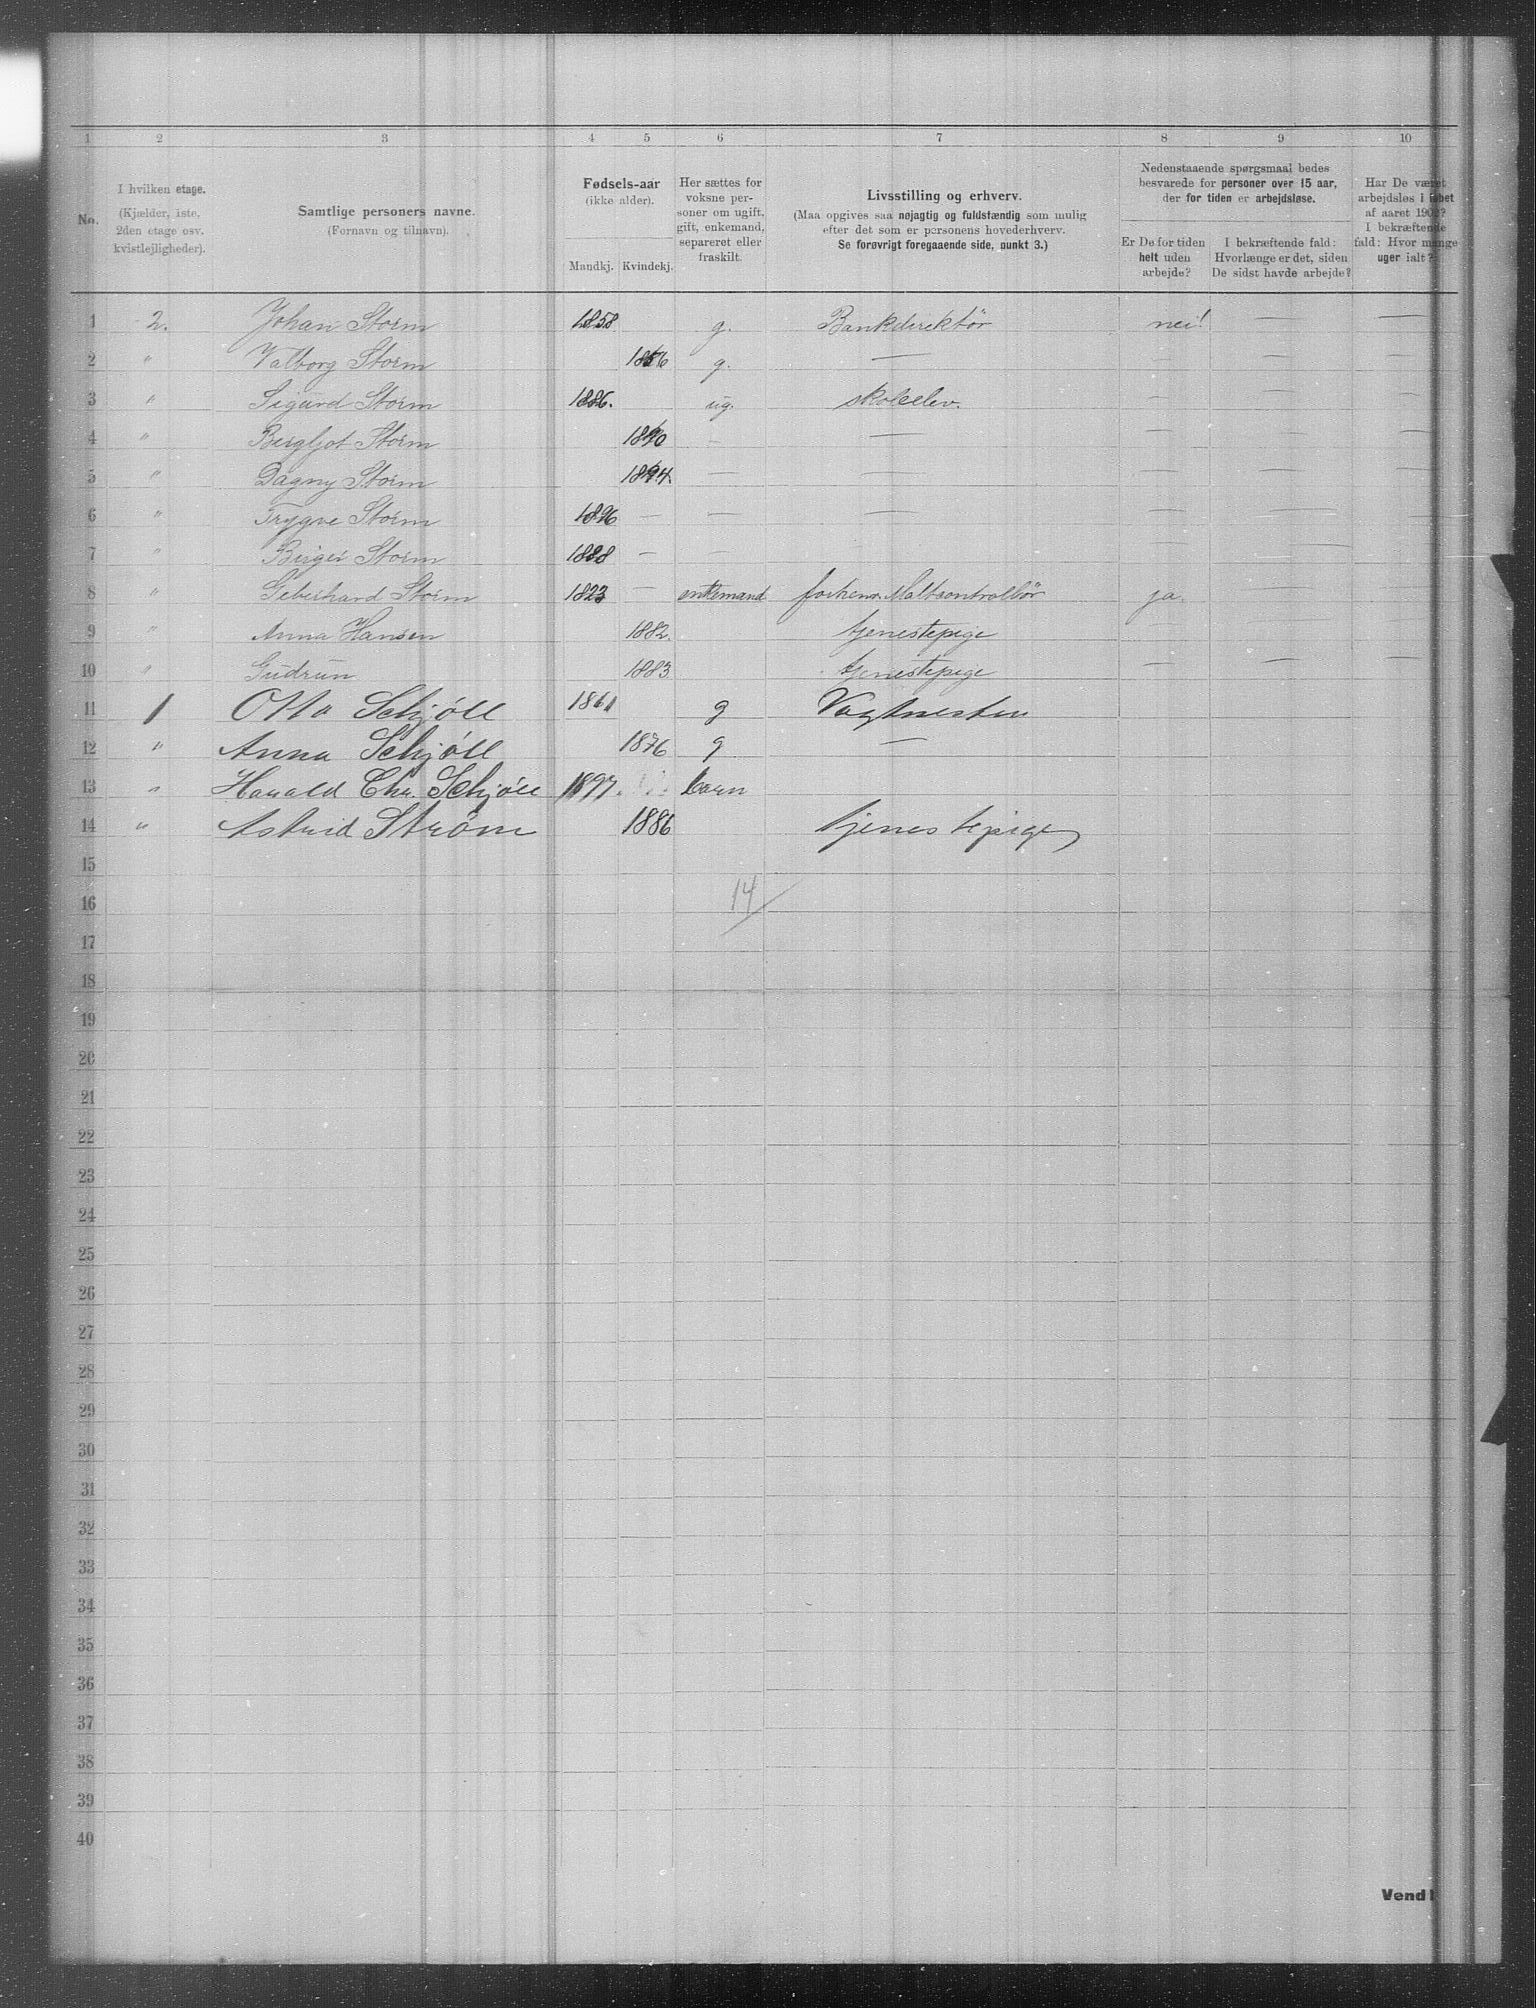 1 2 3 4 5 6 7 8 9 10
No.
I hvilken etage.
(Kjælder, 1ste,
2den etage osv.
kvistlejligheder).
Samtlige personers navne.
(Fornavn og tilnavn).
Fødsels-aar
(ikke alder).
Mandkj. Kvindekj.
Her sættes for
voksne per-
soner om ugift,
gift, enkemand,
separeret eller
fraskilt.
Livsstilling og erhverv.
(Maa opgives saa nøjagtig og fuldstændig som mulig
efter det som er personens hovederhverv.
Se forøvrigt foregaaende side, punkt 3.)
Nedenstaaende spørgsmaal bedes
besvarede for personer over 15 aar,
der for tiden er arbejdsløse.
Er De for tiden
helt uden
arbejde?
I bekræftende fald:
Hvorlænge er det, siden
De sidst havde arbejde?
Har De været
arbejdsløs i løbet
af aaret 1902?
I bekræftende
fald: Hvor mange
uger ialt?
1 2. Johan Storm 1858 g. Bankdirektör nei! — —
2 " Valborg Storm g. — — — —
3 " Sigurd Storm 1886. ug. skoleelev. — — —
4 " Bergljot Storm — — — — —
5 " Dagny Storm — — — — —
6 " Trygve Storm 1896 — — — — — —
7 " Birger Storm — — — — — —
8 " Storm 1823 — enkemand ja. — —
9 " Anna Hansen 1882. tjenestepige — — —
10 " Gudrun 1883 tjenestepige — — —
11 1 Otto Schjöll 1861 g
12 " Anna Schjöll 1876 g —
13 " Harald Chr. Schjöll 1897. barn
14 " Astrid Strøm 1886 tjenestepige
15
14/
16
17
18
19
20
21
22
23
24
25
26
27
28
29
30
31
32
33
34
35
36
37
38
39
40
Vend!